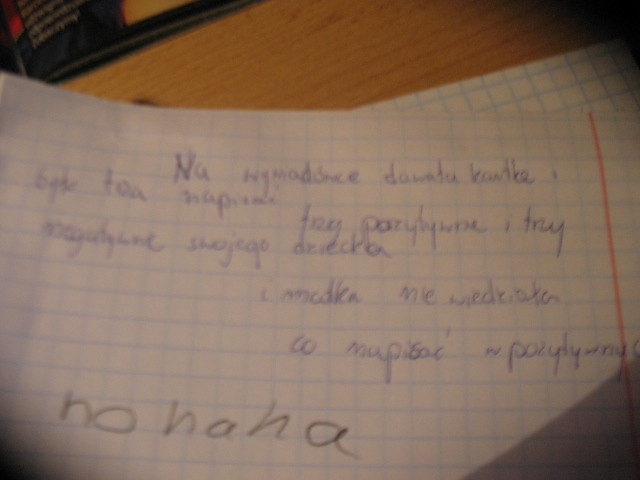 Na wywiadówce dawała kartkę i
było trza napisać
trzy pozytywne i trzy
negatywne swojego dziecka
i matka nie wiedziała
co napisać w pozytywnyc
no haha